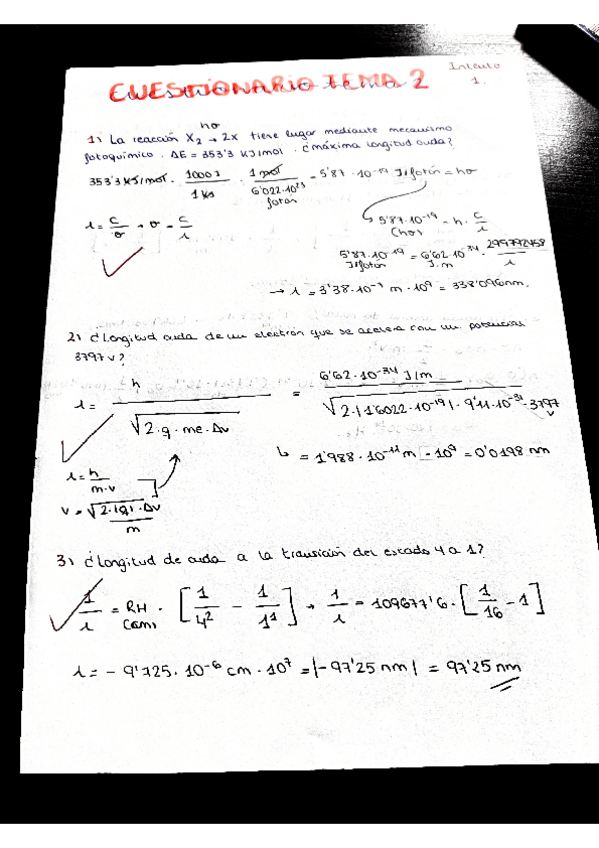 CUESTIONARIO TEMA 2
Intento 1.
1) La reacción X₂ → 2X tiene lugar mediante mecanismo
fotoquímico. ΔE = 353'3 KJ/mol. ¿máxima longitud onda?
353'3 KJ/mol · 1000 J / 1 KJ · 1 mol / 6'022·10²³ fotón = 5'87·10⁻¹⁹ J/fotón = hυ
λ = c/υ → υ = c/λ
5'87·10⁻¹⁹ (hυ) = h · c/λ
5'87·10⁻¹⁹ J/fotón = 6'62·10⁻³⁴ J.m · 299792458 / λ
→ λ = 3'38·10⁻⁷ m · 10⁹ = 338'096nm.
2) ¿Longitud onda de un electrón que se acelera con un potencial
3797 v?
λ = h / √2·q·me·Δv = 6'62·10⁻³⁴ J/m / √2·|1'6022·10⁻¹⁹|·9'11·10⁻³¹·3797 v
↳ = 1'988·10⁻¹¹ m · 10⁹ = 0'0198 nm
λ = h / m·v
v = √2·|q|·Δv / m
3) ¿Longitud de onda a la transición del estado 4 a 1?
1/λ = RH · [1/4² − 1/1¹] → 1/λ = 109677'6 · [1/16 − 1]
λ = − 9'725·10⁻⁶ cm · 10⁷ = |−97'25 nm| = 97'25 nm